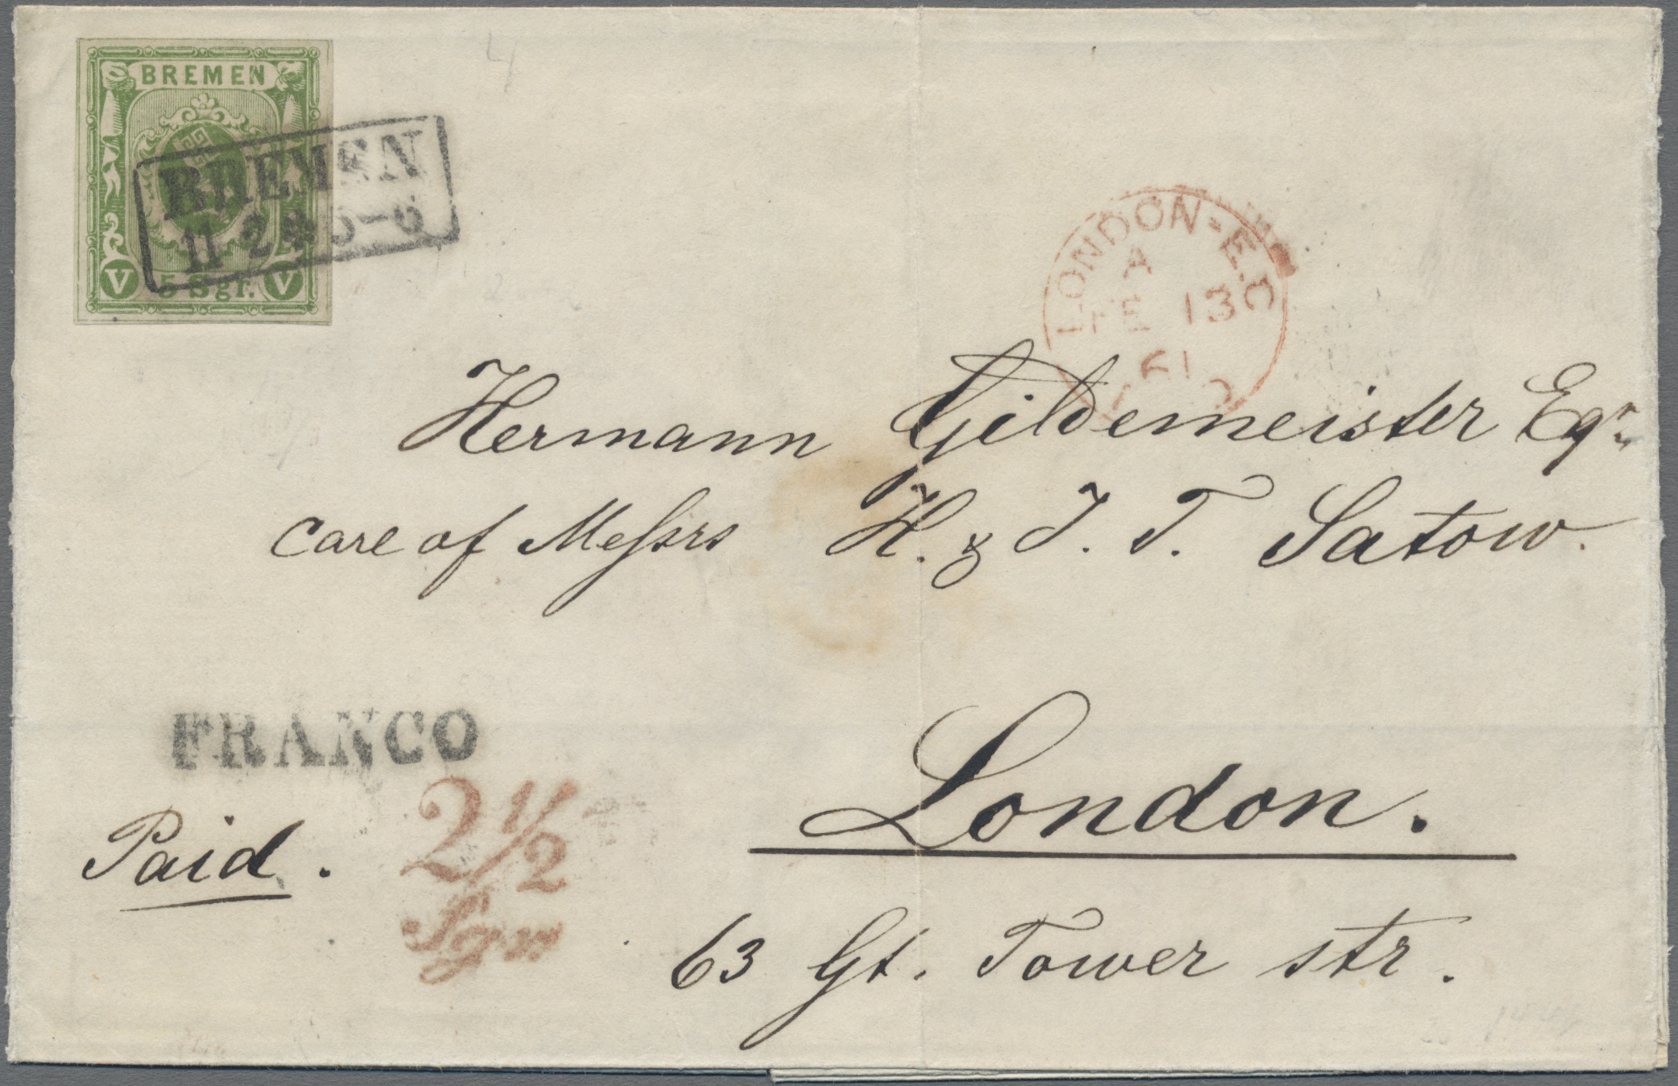 BREMEN
V 5 Sgr. V
BREMEN
11 2 * 5-6
LONDON-E.C
A
FE 13
61
Hermann Gildemeister Eqr.
care of Messrs H. & J. T. Satow.
FRANCO
Paid.
2½
Sgr.
London.
63 Gt. Tower str.